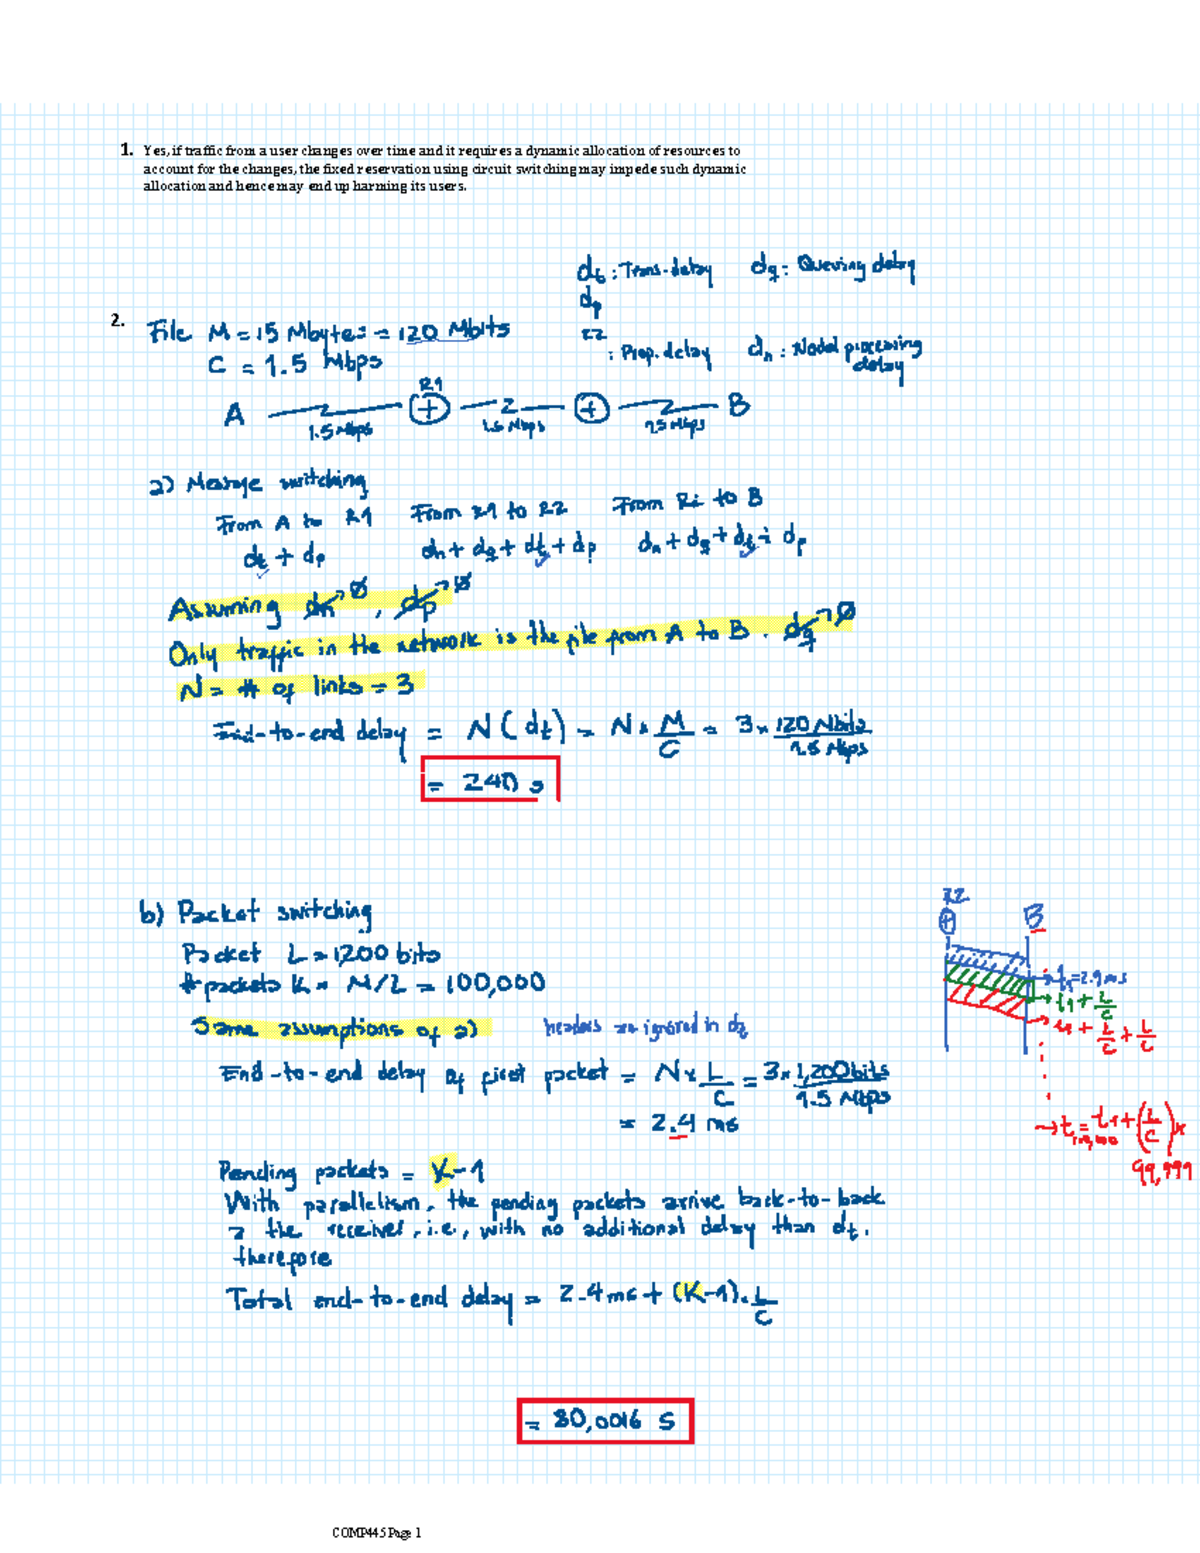 1. Yes, if traffic from a user changes over time and it requires a dynamic allocation of resources to
account for the changes, the fixed reservation using circuit switching may impede such dynamic
allocation and hence may end up harming its users.
dt : Trans-delay dq : Queuing delay
dp
: Prop. delay dn : Nodal processing delay
2. File M = 15 Mbytes = 120 Mbits
C = 1.5 Mbps
A R1 B
1.5 Mbps 1.5 Mbps 1.5 Mbps
a) Message switching
From A to R1 From R1 to R2 From R2 to B
dt + dp dn + dq + dt + dp dn + dq + dt + dp
Assuming dn → Ø, dp → Ø
Only traffic in the network is the file from A to B. dq → Ø
N = # of links = 3
End-to-end delay = N(dt) = N × M/C = 3 × 120 Mbits / 1.5 Mbps
= 240 s
b) Packet switching
Packet L = 1,200 bits
# packets K = M/L = 100,000
Same assumptions of a) headers are ignored in dt
End-to-end delay of first packet = N × L/C = 3 × 1,200 bits / 1.5 Mbps
= 2.4 ms
Pending packets = K-1
With parallelism, the pending packets arrive back-to-back
a the receiver, i.e., with no additional delay than dt.
therefore
Total end-to-end delay = 2.4 ms + (K-1). L/C
= 80,0016 s
R2 B
→ t1 = 2.4 ms
→ t1 + L/C
→ t1 + L/C + L/C
→ t100,000 = t1 + (L/C) × 99,999
COMP445 Page 1